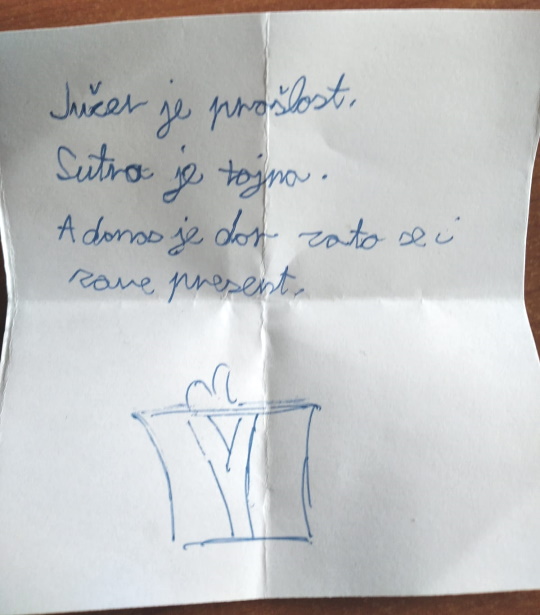 Jučer je prošlost.
Sutra je tajna.
A danas je dar zato se i
zove present.